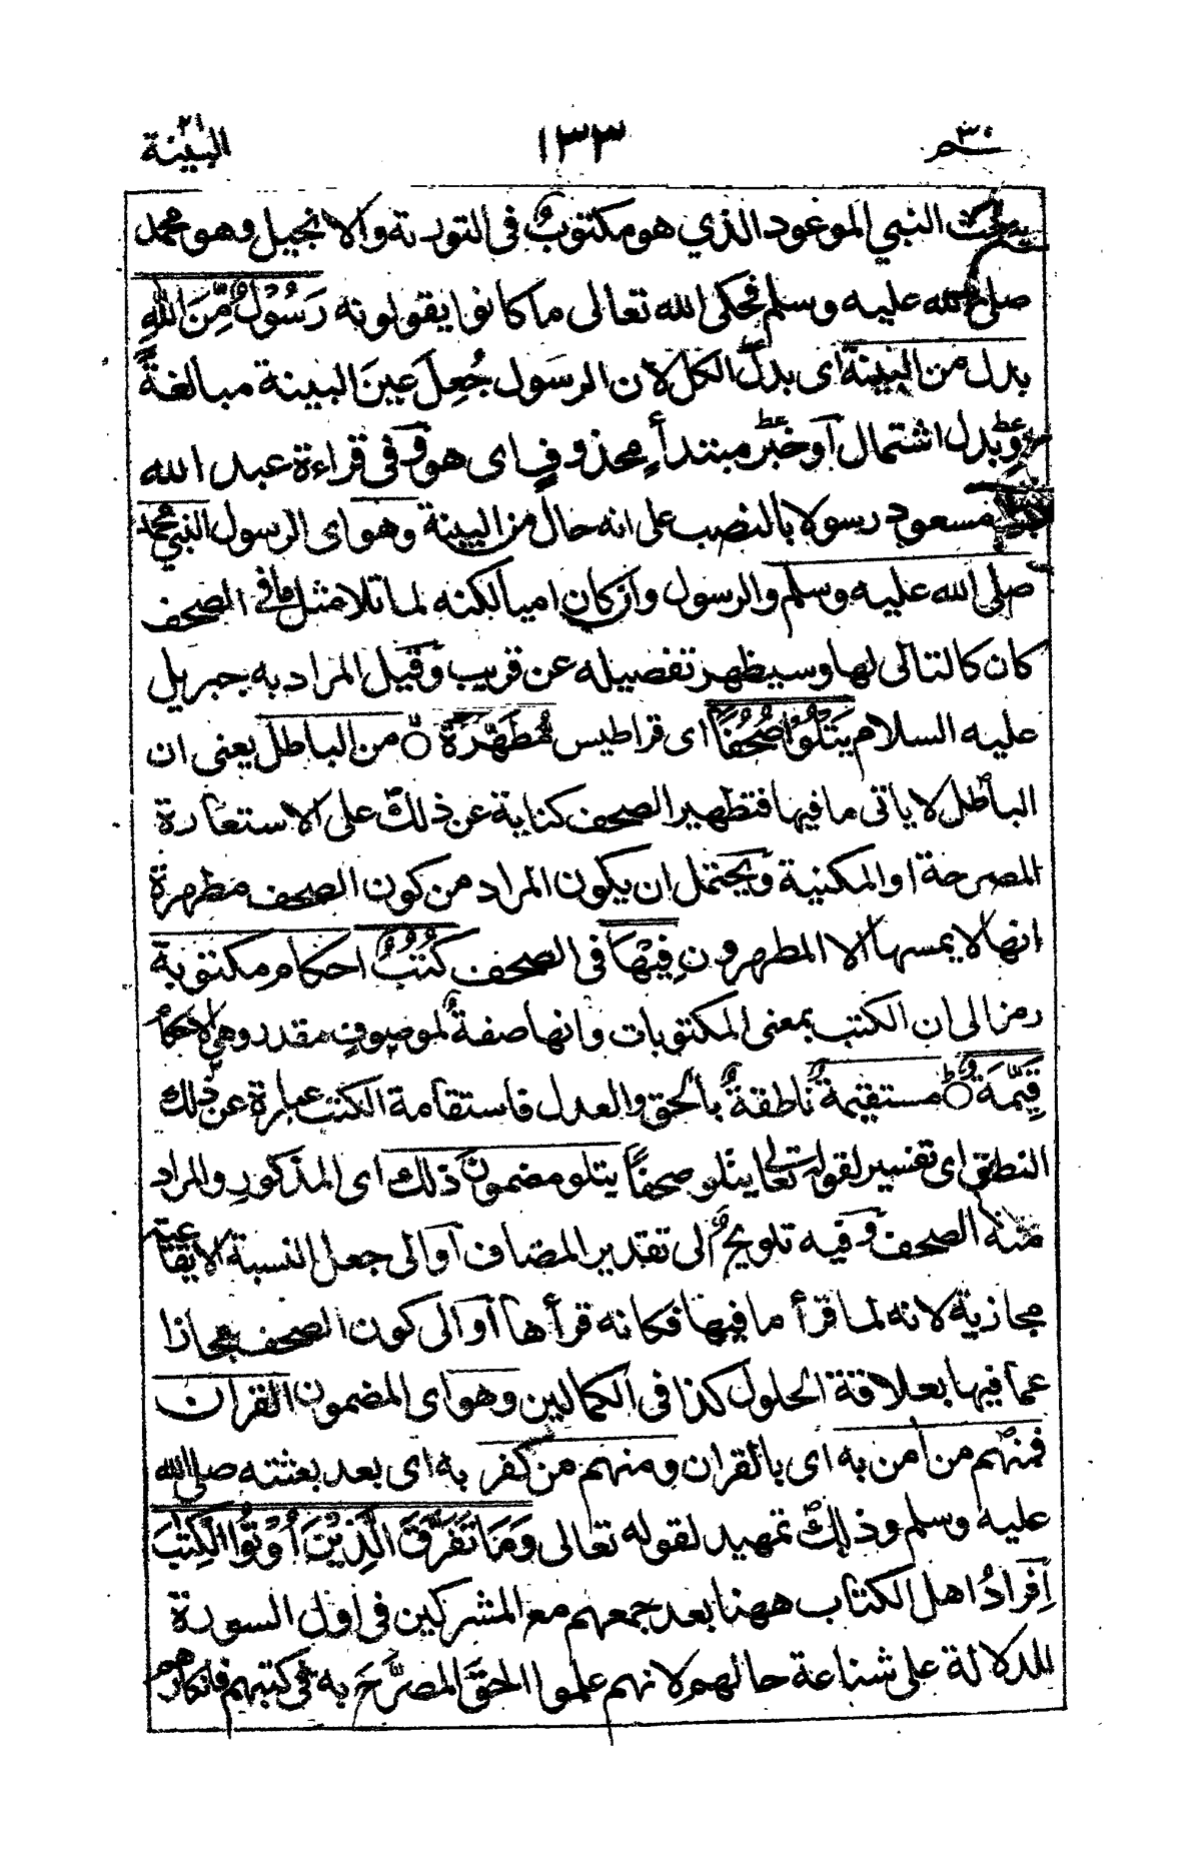 البينة ٢١
١٣٣
عم ٣٠
يبعث النبي الموعود الذي هو مكتوبٌ فى التورىة والانجيل وهو محمد
صلى الله عليه وسلم فحكى الله تعالى ما كانوا يقولونه رَسُوْلٌ مِّنَ اللّٰهِ
بدل من البينة اى بدل الكل لان الرسول جُعِلَ عينَ البينة مبالغةً
وبدل اشتمال او خبر مبتدأٍ محذوفٍ اى هو وفى قراءة عبد الله
مسعود رسولا بالنصب على انه حال من البينة وهو اى الرسول النبى محمد
صلى الله عليه وسلم والرسول وان كان اميا لكنه لما تلا مثل ما فى الصحف
كان كالتالى لها وسيظهر تفصيله عن قريب وقيل المراد به جبريل
عليه السلام يَتْلُوْا صُحُفًا اى قراطيس مُّطَهَّرَةً من الباطل يعنى ان
الباطل لا ياتى ما فيها فتطهير الصحف كناية عن ذلك على الاستعارة
المصرحة او المكنية ويحتمل ان يكون المراد من كون الصحف مطهرة
انها لا يمسها الا المطهرون فِيْهَا فى الصحف كُتُبٌ احكام مكتوبة
رمز الى ان الكتب بمعنى المكتوبات وانها صفةٌ لموصوفٍ مقدر وهى الاحكام
قَيِّمَةٌ مستقيمة ناطقةٌ بالحق والعدل فاستقامة الكتب عبارة عن ذلك
النطق اى تفسير لقوله تعالى يتلو صحفًا يتلو مضمون ذلك اى المذكورِ والمراد
منه الصحف وفيه تلويحٌ الى تقدير المضاف او الى جعل النسبة الايقاعية
مجازية لانه لما قرأ ما فيها فكانه قرأها او الى كون الصحف مجازا
عما فيها بعلاقة الحلول كذا فى الكمالين وهو اى المضمون القران
فمنهم من امن به اى بالقران ومنهم من كفر به اى بعد بعثته صلى الله
عليه وسلم وذلك تمهيد لقوله تعالى وَمَا تَفَرَّقَ الَّذِيْنَ اُوْتُوا الْكِتٰبَ
اِفرادُ اهل الكتاب ههنا بعد جمعهم مع المشركين فى اول السورة
للدلالة على شناعة حالهم لانهم علموا الحقَ المصرَّحَ به فى كتبهم فانكارهم